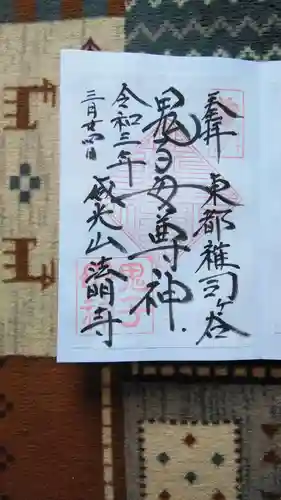 奉拝
東都雑司ヶ谷
鬼子母尊神
令和三年
三月廿四日
威光山法明寺